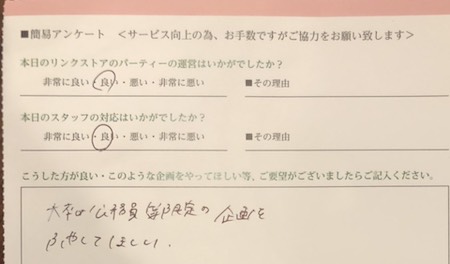 ■簡易アンケート ＜サービス向上の為、お手数ですがご協力をお願い致します＞
本日のリンクストアのパーティーの運営はいかがでしたか？
非常に良い・良い・悪い・非常に悪い ■その理由
本日のスタッフの対応はいかがでしたか？
非常に良い・良い・悪い・非常に悪い ■その理由
こうした方が良い・このような企画をやってほしい等、ご要望がございましたらご記入ください。
大卒 公務員 限定の企画を
ふやしてほしい.